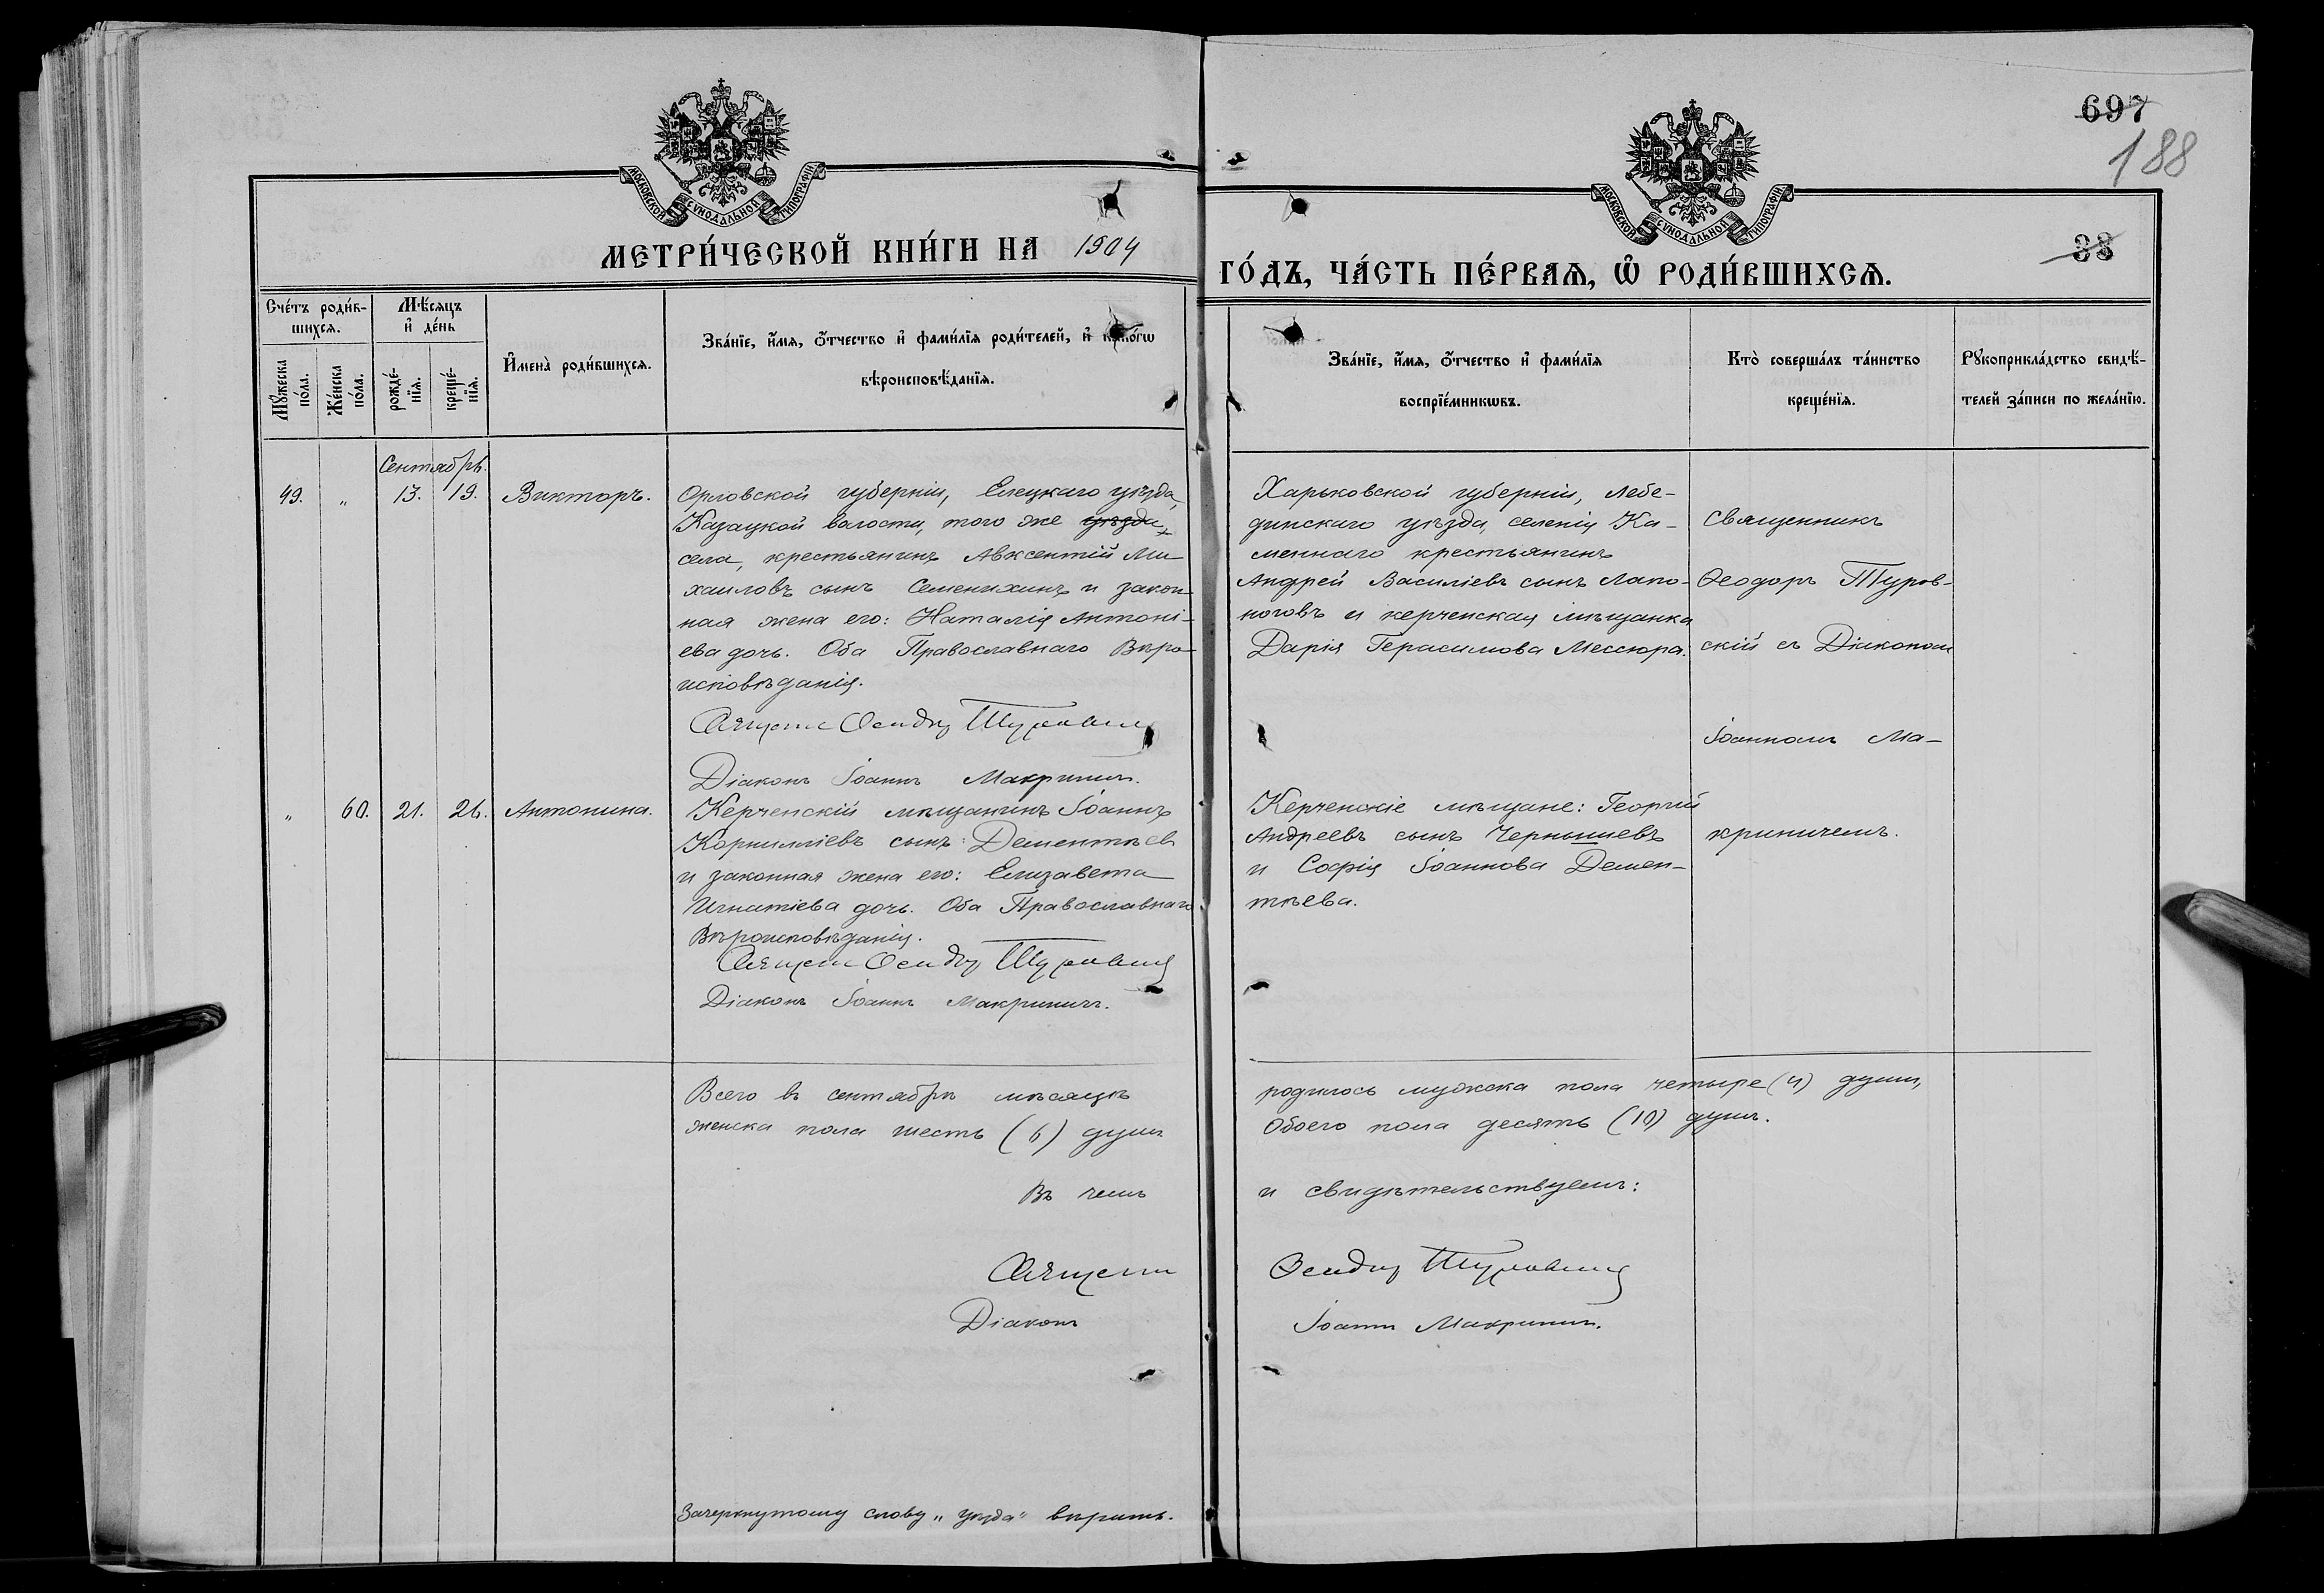 697
188
38
МОСКОВСКОЙ СѴНОДАЛЬНОЙ ТИПОГРАФІИ
МОСКОВСКОЙ СѴНОДАЛЬНОЙ ТИПОГРАФІИ
МЕТРИ́ЧЕСКОЙ КНИ́ГИ НА 1904
ГО́ДЪ, ЧА́СТЬ ПЕ́РВАѦ, Ѽ РОДИ́ВШИХСѦ.
Сче́тъ роди́в-
шихсѧ.
Мꙋ́жеска
по́ла.
Же́нска
по́ла.
Мѣ́сѧцъ
и҆ де́нь
рожде́-
нїѧ.
креще́-
нїѧ.
И҆мена̀ роди́вшихсѧ.
Зва́нїе, и҆́мѧ, ѻ҆́тчество и҆ фами́лїѧ роди́телей, и҆ како́гѡ
вѣроисповѣ́данїѧ.
Зва́нїе, и҆́мѧ, ѻ҆́тчество и҆ фами́лїѧ
воспрїе́мникѡвъ.
Кто̀ соверша́лъ та́инство
креще́нїѧ.
Рꙋкоприкла́дство свидѣ́-
телей за́писи по жела́нїю.
Сентябрь.
49. " 13. 19. Викторъ.
Орловской губерніи, Елецкаго уѣзда,
Казацкой волости, того же уѣзда,
села, крестьянинъ Авксентій Ми-
хаиловъ сынъ Семенихинъ и закон-
ная жена его: Наталія Антоні-
ева дочь. Оба Православнаго Вѣро-
исповѣданія.
Священ Ѳеодоръ Туровскій
Діаконъ Іоаннъ Макриничъ.
Харьковской губерніи, Лебе-
динскаго уѣзда, селенія Ка-
меннаго крестьянинъ
Андрей Василіевъ сынъ Лапо-
ноговъ и керченская мѣщанка
Дарія Герасимова Мессюра.
Священникъ
Ѳеодоръ Туров-
скій съ Діакономъ
Іоанномъ Ма-
криничемъ.
" 60. 21. 26. Антонина.
Керченскій мѣщанинъ Іоаннъ
Корниліевъ сынъ Дементьевъ
и законная жена его: Елизавета
Игнатіева дочь. Оба Православнаго
Вѣроисповѣданія.
Священ Ѳеодоръ Туровскій
Діаконъ Іоаннъ Макриничъ.
Керченскіе мѣщане: Георгій
Андреевъ сынъ Чернышевъ
и Софія Іоаннова Демен-
тьева.
Всего въ сентябрѣ мѣсяцѣ родилось мужска пола четыре (4) души,
женска пола шесть (6) душъ Обоего пола десять (10) душъ.
Въ чемъ и свидѣтельствуемъ:
Священ Ѳеодоръ Туровскій
Діаконъ Іоаннъ Макриничъ.
Зачеркнутому слову „уѣзда" вѣрить.